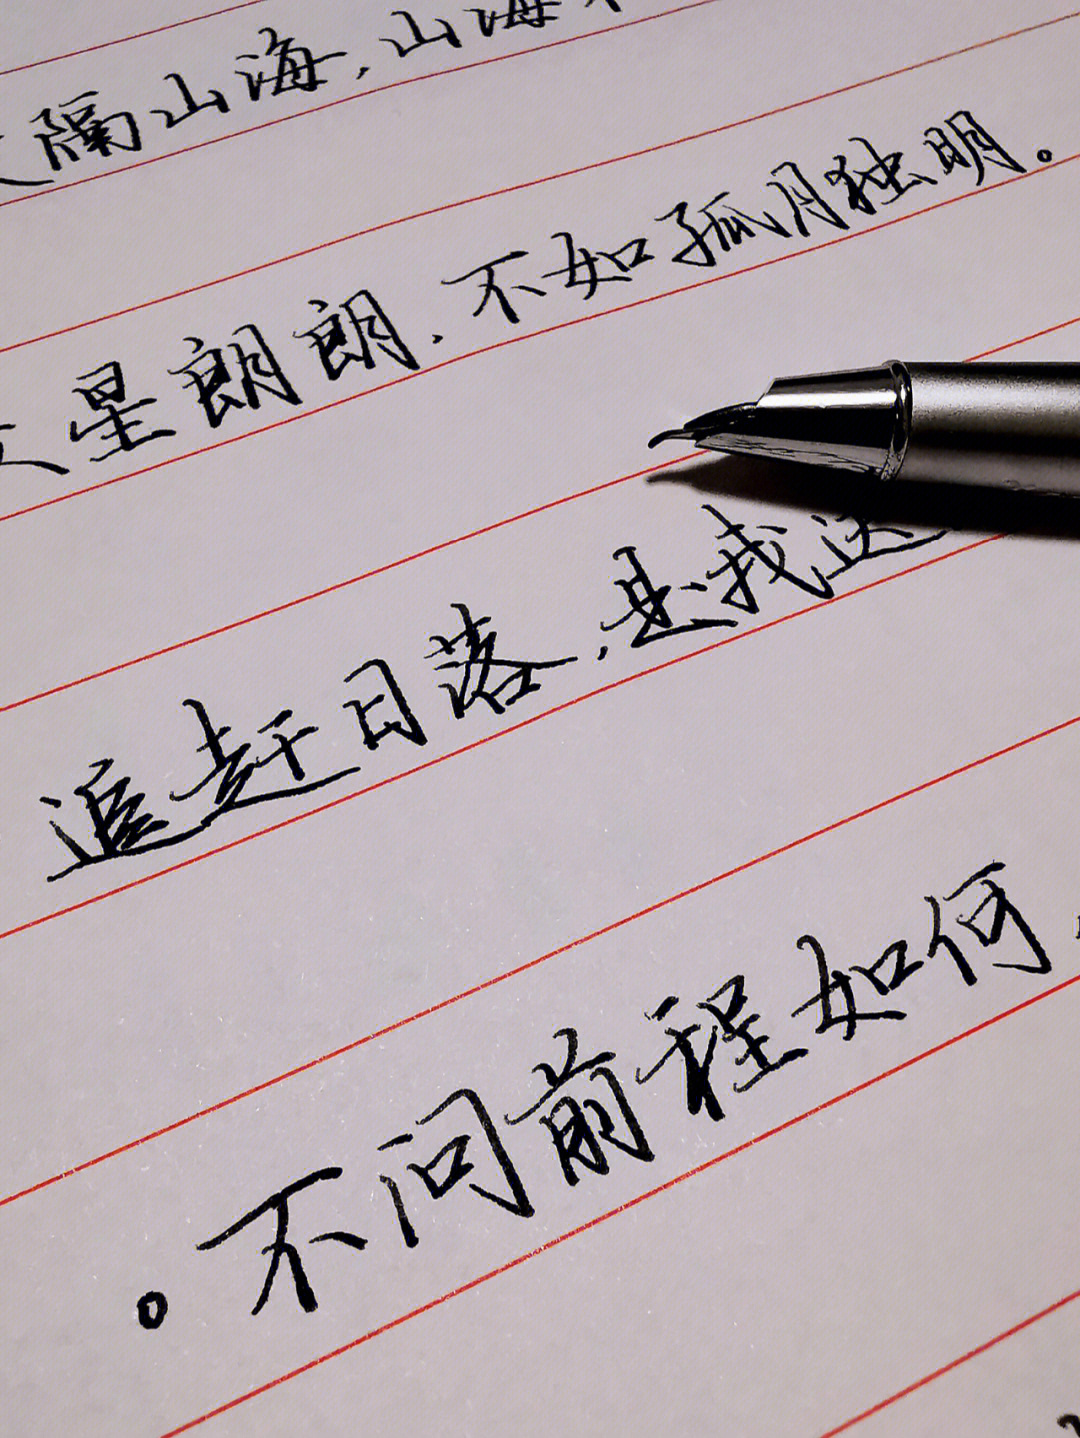 隔山海,山海
星朗朗,不如孤月独明。
追赶日落,是我送
。不问前程如何,